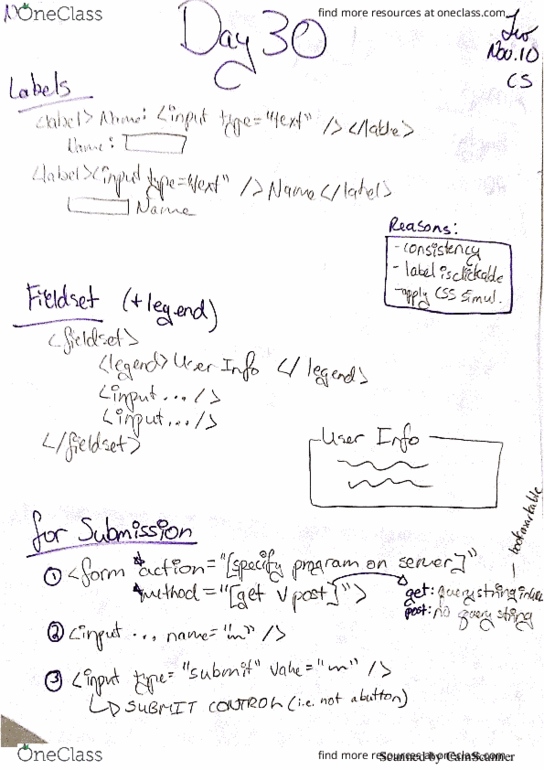 OneClass
find more resources at oneclass.com
Day 30
Nov. 10
CS
Labels
<label> Name: <input type="text" /> </lable>
Name:
<label><input type="text" /> Name </label>
Name
Reasons:
- consistency
- label is clickable
- apply CSS simul.
Fieldset (+legend)
<fieldset>
<legend> User Info </legend>
<input ... />
<input ... />
</fieldset>
User Info
for Submission
bookmarkable
① <form *action="[specify program on server]"
*method="[get v post]">
get: query string in URL
post: no query string
② <input ... name="m" />
③ <input type="submit" value="m" />
↳ SUBMIT CONTROL (i.e. not a button)
OneClass
find more resources at oneclass.com
Scanned by CamScanner